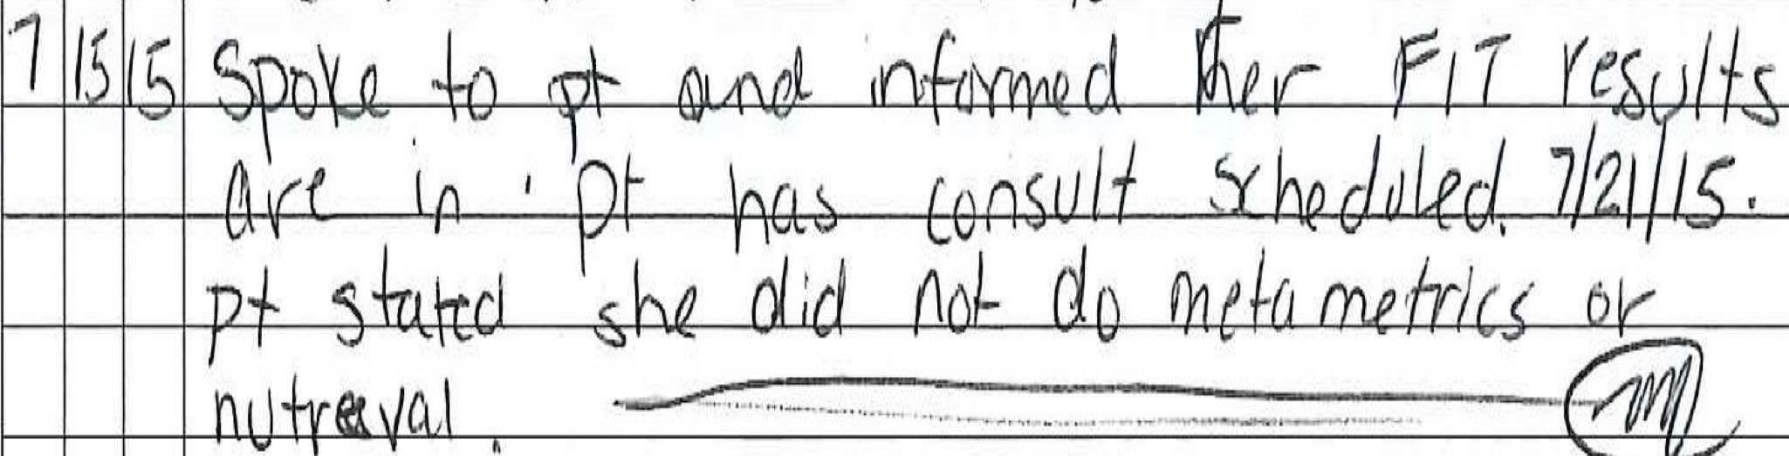 7 15 15 Spoke to pt and informed her FIT results
are in. Pt has consult scheduled. 7/21/15.
pt stated she did not do metametrics or
nutreval.